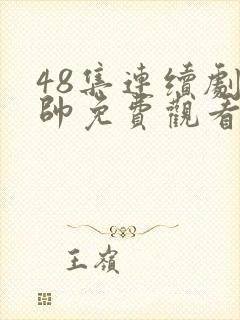 48集連續劇
帥免費觀看
王嶺